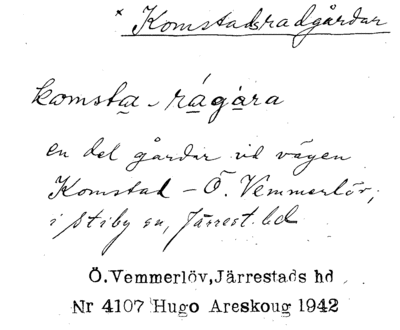 * Komstadsradgårdar
komsta - rágåra
en del gårdar vid vägen
Komstad - Ö. Vemmerlöv,
i Stiby sn, Järrest. hd
Ö.Vemmerlöv,Järrestads hd
Nr 4107 Hugo Areskoug 1942